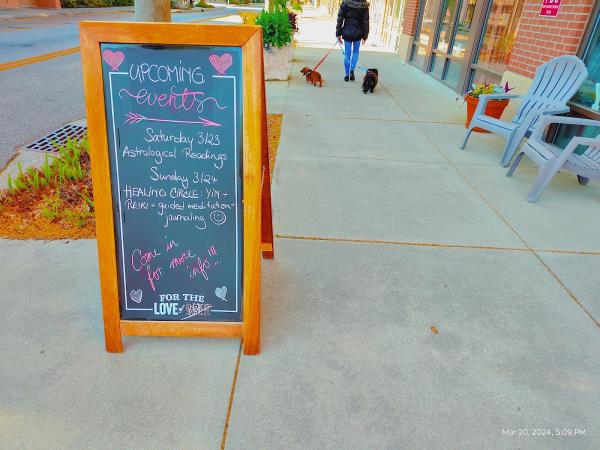 UPCOMING
events
Saturday 3/23
Astrological Readings
Sunday 3/24
HEALING CIRCLE: YIN +
REIKI + guided meditation +
journaling
Come in
for more
info!!!
FOR THE
LOVE of
Mar 20, 2024, 5:09 PM